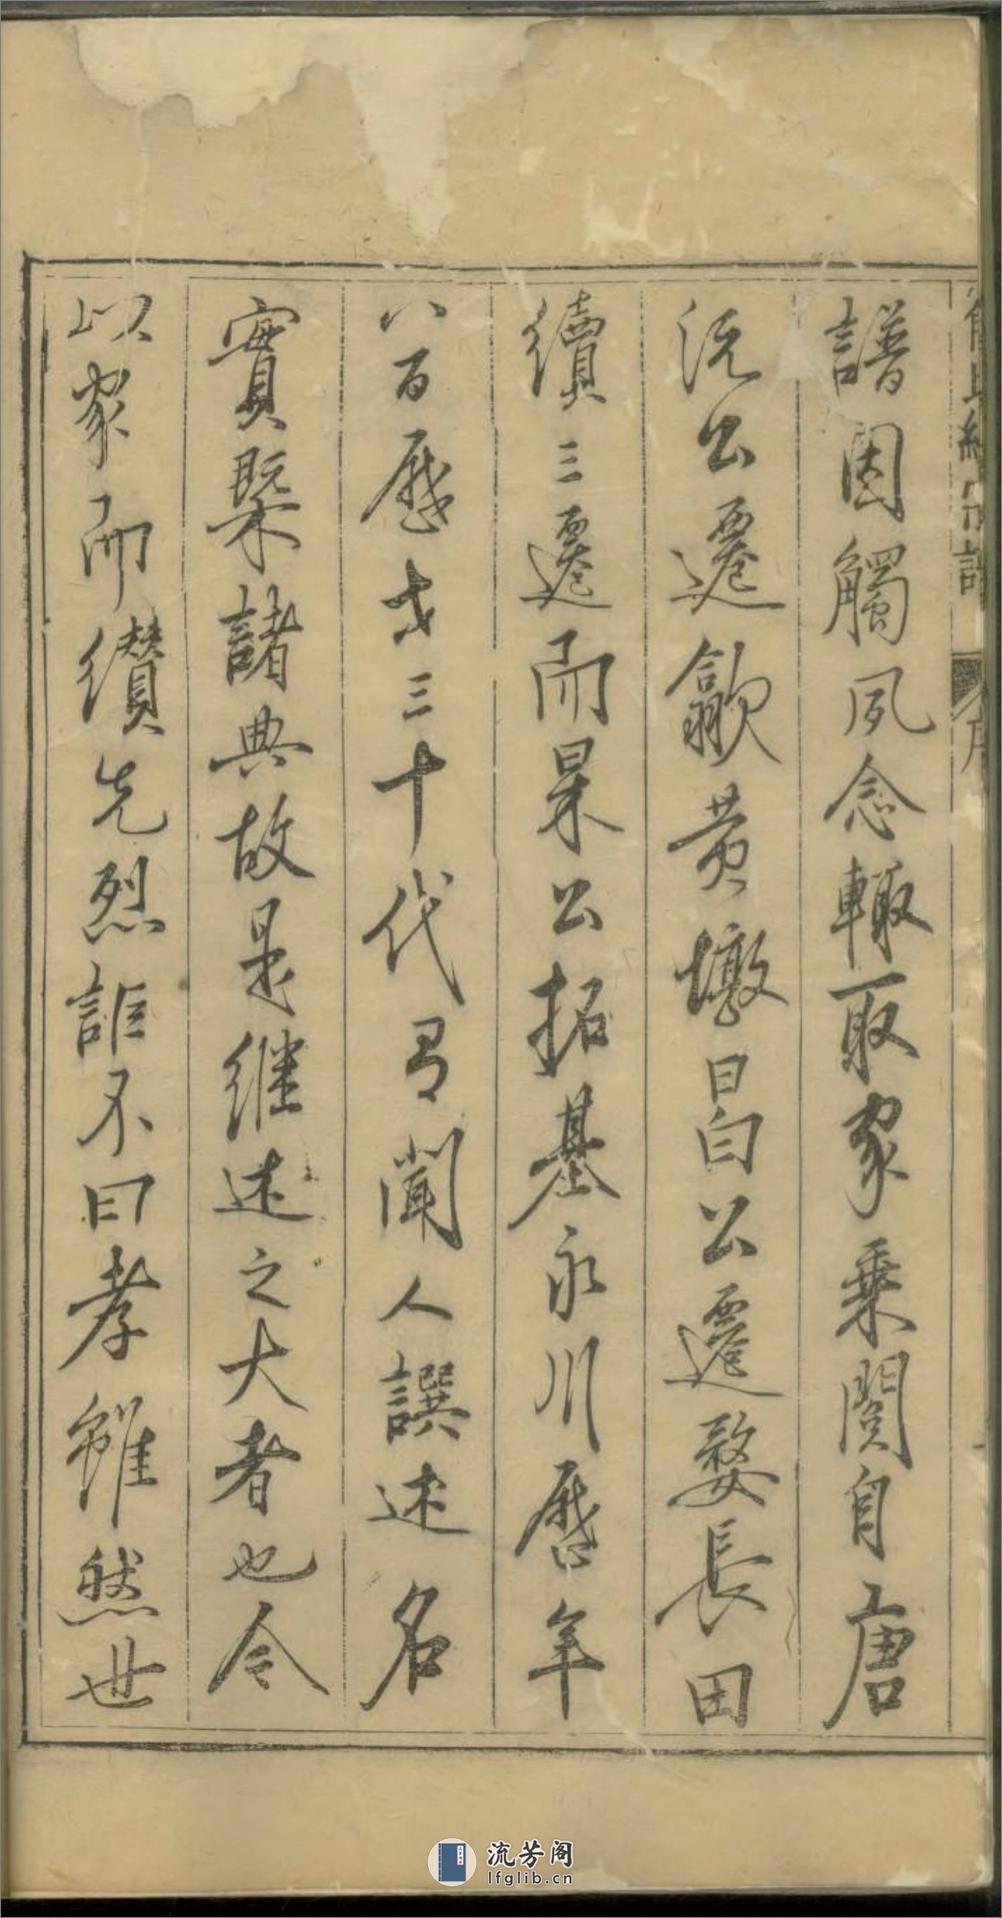 譜因觸夙念輙取家乘閱自唐
沅公遷歙黄墩曰曷公遷婺長田
續三遷而杲公拓基永川歷年
八百歷世三十代有聞人譔述名
實槩諸典故是继述之大者也今
以家而纘先烈誰不曰孝雖然世
氏統宗譜
序
流芳阁
lfglib.cn